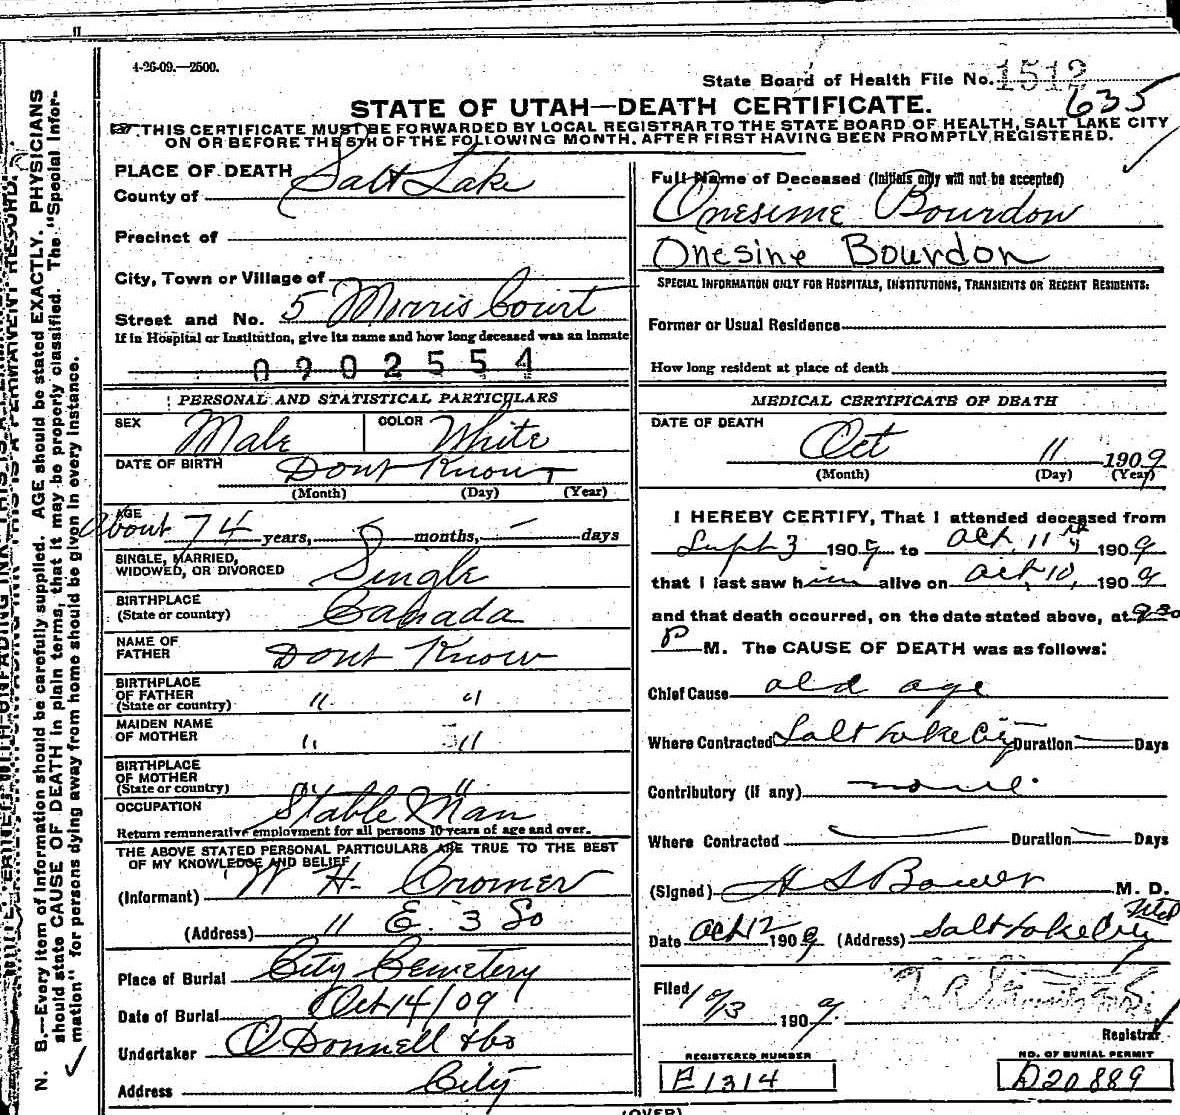 4-26-09.—2500.
State Board of Health File No. 1512
635
STATE OF UTAH—DEATH CERTIFICATE.
THIS CERTIFICATE MUST BE FORWARDED BY LOCAL REGISTRAR TO THE STATE BOARD OF HEALTH, SALT LAKE CITY
ON OR BEFORE THE 5TH OF THE FOLLOWING MONTH. AFTER FIRST HAVING BEEN PROMPTLY REGISTERED.
PLACE OF DEATH
County of Salt Lake
Precinct of
City, Town or Village of
Street and No. 5 Morris Court
If in Hospital or Institution, give its name and how long deceased was an inmate
0902554
PERSONAL AND STATISTICAL PARTICULARS
SEX Male COLOR White
DATE OF BIRTH Dont Know
(Month) (Day) (Year)
AGE About 74 years, months, days
SINGLE, MARRIED,
WIDOWED, OR DIVORCED Single
BIRTHPLACE
(State or country) Canada
NAME OF
FATHER Dont Know
BIRTHPLACE
OF FATHER
(State or country) " "
MAIDEN NAME
OF MOTHER " "
BIRTHPLACE
OF MOTHER
(State or country) "
OCCUPATION Stable Man
Return remunerative employment for all persons 10 years of age and over.
THE ABOVE STATED PERSONAL PARTICULARS ARE TRUE TO THE BEST
OF MY KNOWLEDGE AND BELIEF
(Informant) W H. Cromer
(Address) 11 E. 3 So
Place of Burial City Cemetery
Date of Burial Oct 14/09
Undertaker O Donnell & bo
Address City
Full Name of Deceased (Initials only will not be accepted)
Onesime Bourdon
Onesine Bourdon
SPECIAL INFORMATION ONLY FOR HOSPITALS, INSTITUTIONS, TRANSIENTS OR RECENT RESIDENTS:
Former or Usual Residence
How long resident at place of death
MEDICAL CERTIFICATE OF DEATH
DATE OF DEATH
Oct 11 1909
(Month) (Day) (Year)
I HEREBY CERTIFY, That I attended deceased from
Sept 3 1909 to Oct. 11th 1909
that I last saw him alive on Oct, 10, 1909
and that death occurred, on the date stated above, at 9 30
P M. The CAUSE OF DEATH was as follows:
Chief Cause old age
Where Contracted Salt Lake City Duration Days
Contributory (if any) none.
Where Contracted Duration Days
(Signed) H S Bower M. D.
Date Oct 12 1909 (Address) Salt Lake City Utah
Filed 10/13 1909
Registrar
REGISTERED NUMBER
E1314
NO. OF BURIAL PERMIT
D20889
(OVER)
N. B.—Every item of Information should be carefully supplied. AGE should be stated EXACTLY. PHYSICIANS
should state CAUSE OF DEATH in plain terms, that it may be properly classified. The "Special Infor-
mation" for persons dying away from home should be given in every instance.